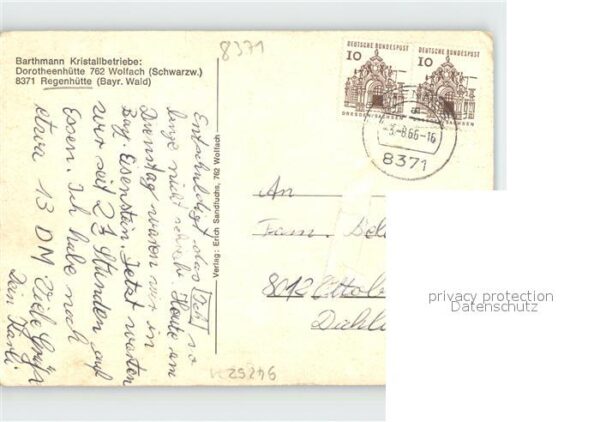 Barthmann Kristallbetriebe:
Dorotheenhütte 762 Wolfach (Schwarzw.)
8371 Regenhütte (Bayr. Wald)
8371
Entschuldigt das ich so
lange nicht schrieb. Heute am
Dienstag waren wir in
Bay. Eisenstein. Jetzt warten
wir seit 2½ Stunden auf
Essen. Ich habe noch
etwa 13 DM. Viele Grüße
Dein Karli
Verlag: Erich Sandfuchs, 762 Wolfach
DEUTSCHE BUNDESPOST
10
DRESDEN/SACHSEN
DEUTSCHE BUNDESPOST
10
SACHSEN
-3.-8.66-16
8371
An
Fam.
8012
94252
privacy protection
Datenschutz